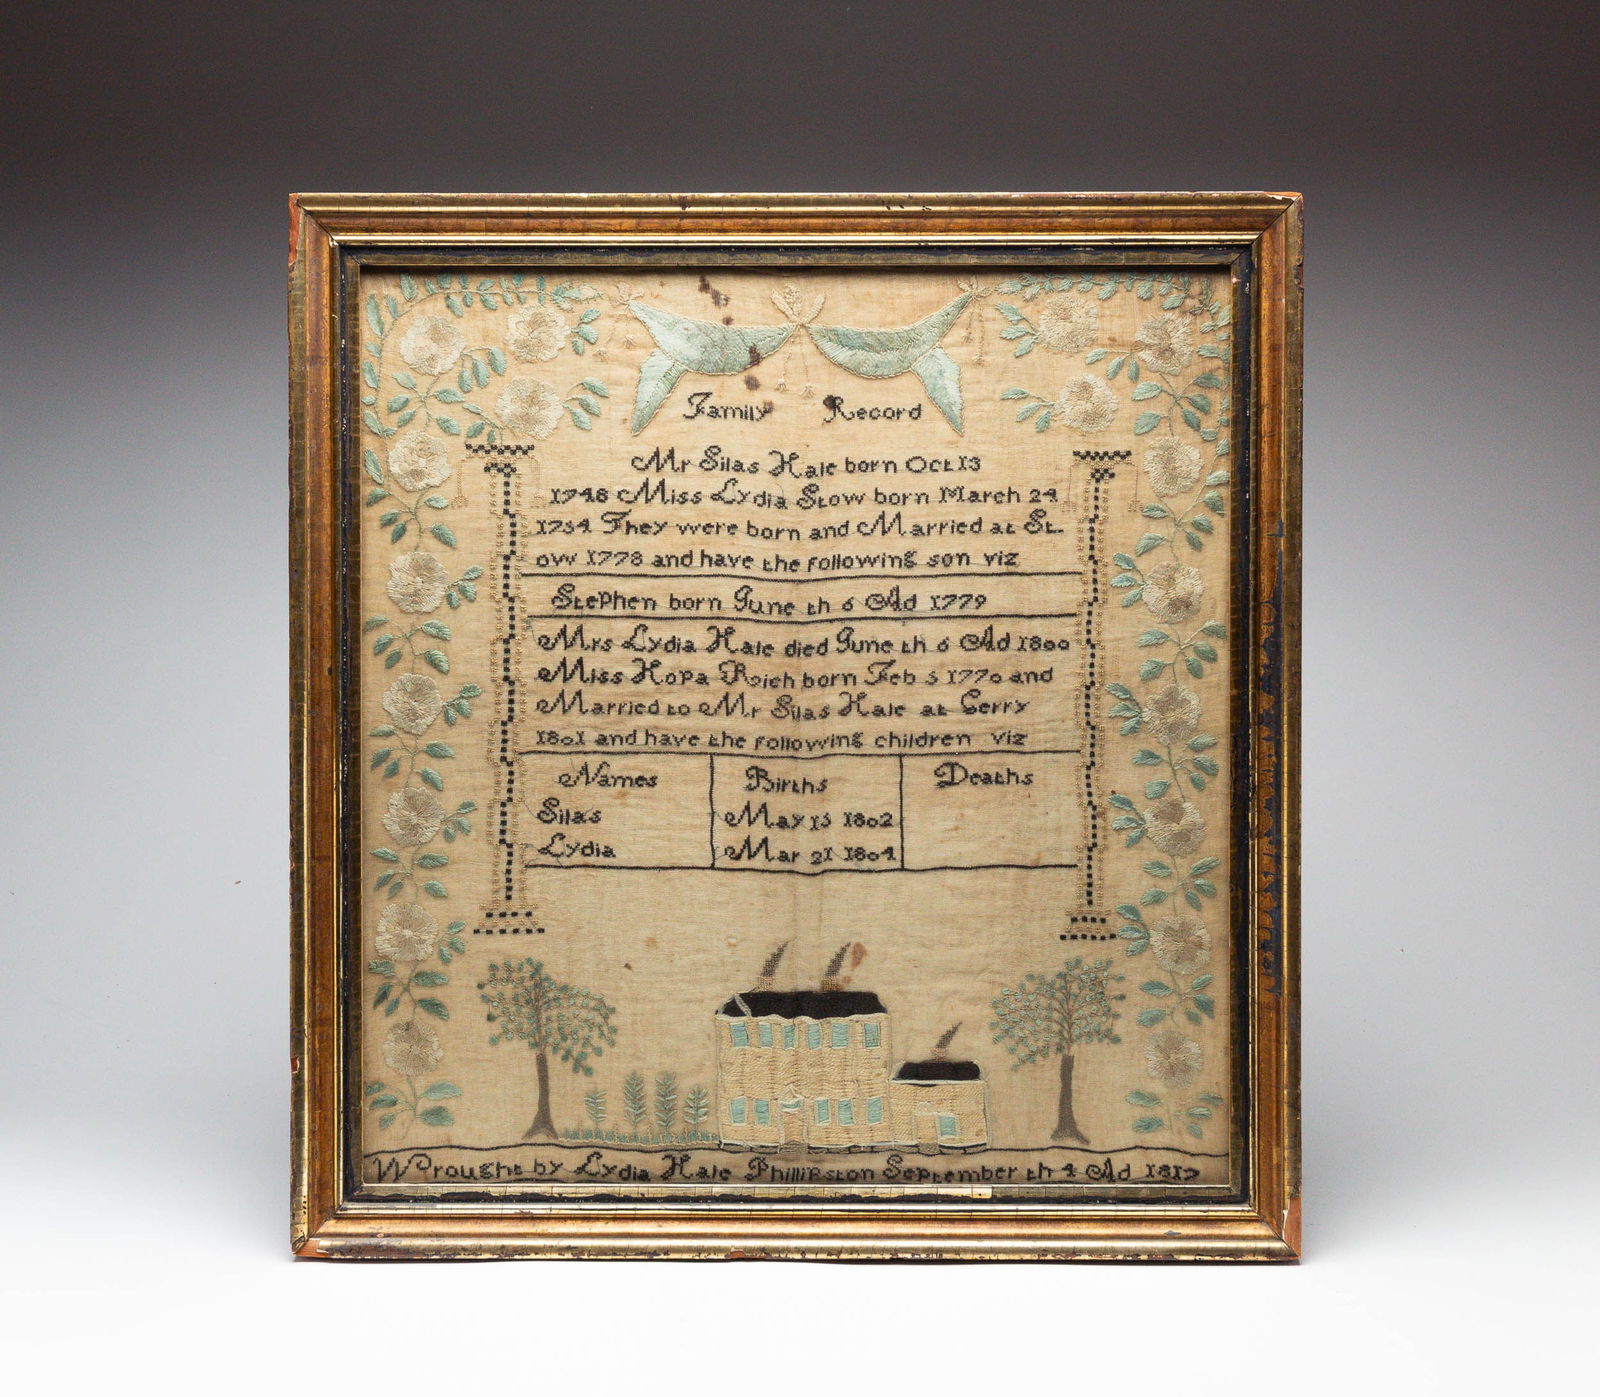 Family Record
Mr Silas Hale born Oct 13
1748 Miss Lydia Stow born March 24
1754 They were born and Married at St
ow 1778 and have the following son viz
Stephen born June th 6 Ad 1779
Mrs Lydia Hale died June th 6 Ad 1800
Miss Hopa born Feb 5 1770 and
Married to Mr Silas Hale at Gerry
1801 and have the following children viz
Names Births Deaths
Silas May 15 1802
Lydia Mar 21 1804
Wrought by Lydia Hale Phillipston September th 4 Ad 1817